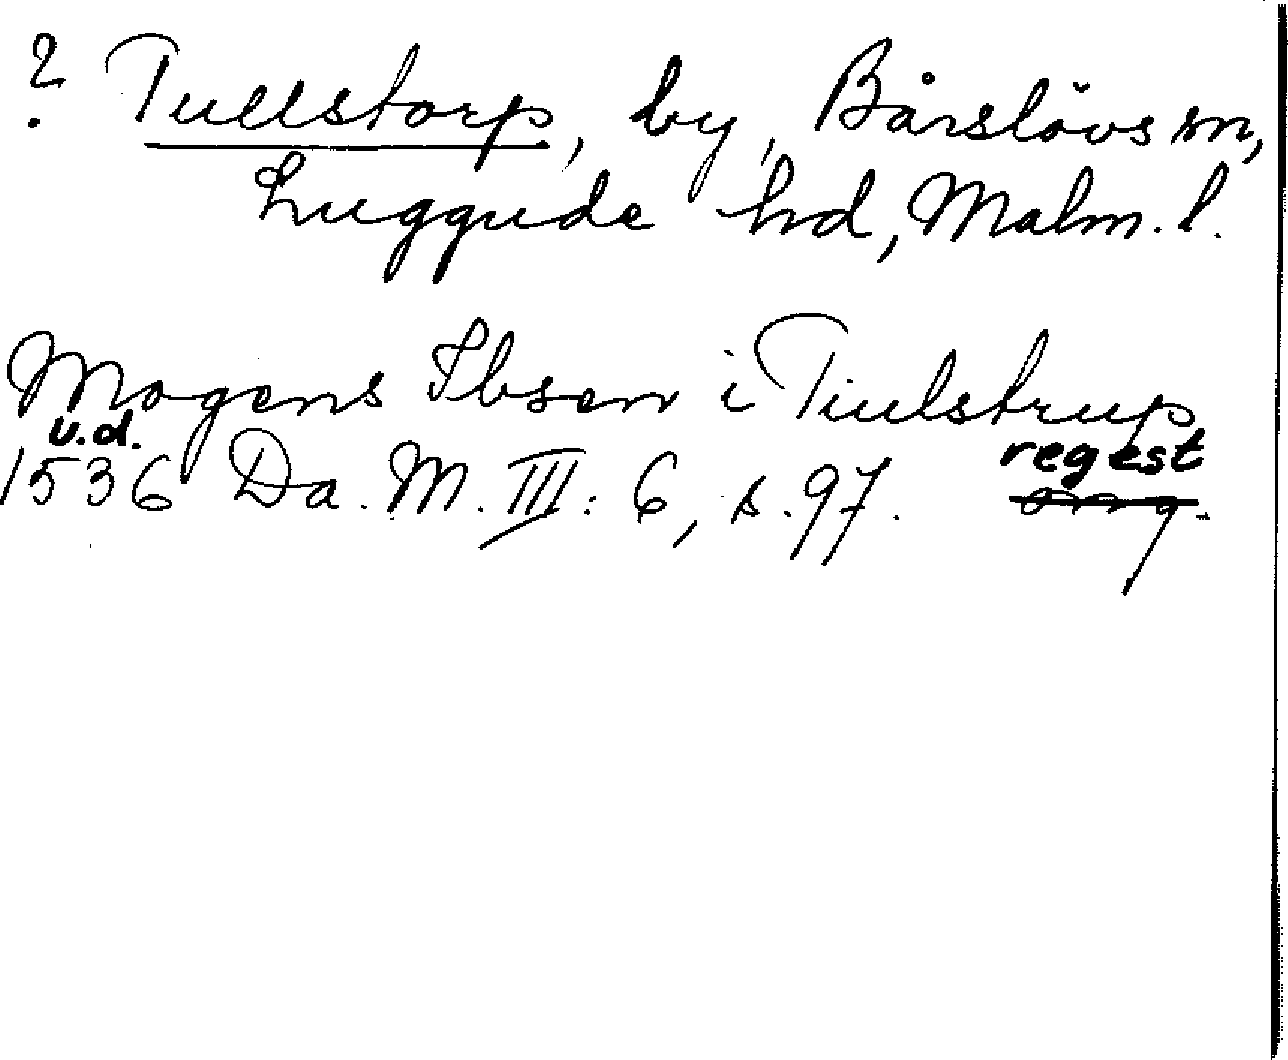 ? Tullstorp, by, Bårslövs sn,
Luggude hd, Malm. l.
Mogens Ibsen i Tiulstrup
u.d.
1536 Da. M. III: 6, s. 97. regest